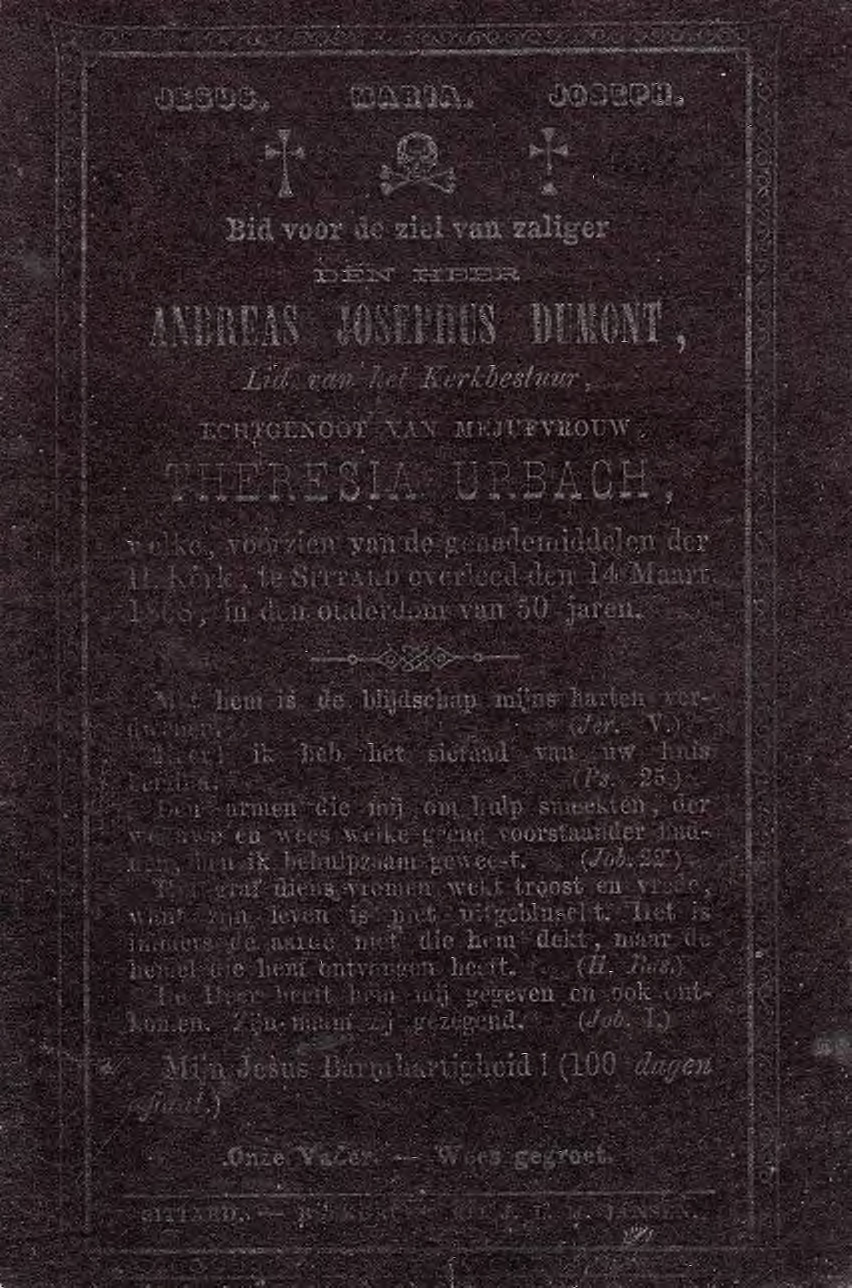 JESUS. MARIA. JOSEPH.
Bid voor de ziel van zaliger
DEN HEER
ANDREAS JOSEPHUS DUMONT,
Lid van het Kerkbestuur,
ECHTGENOOT VAN MEJUFVROUW
THERESIA URBACH,
welke, voorzien van de genademiddelen der
H. Kerk, te SITTARD overleed den 14 Maart
1868, in den ouderdom van 50 jaren.
Met hem is de blijdschap mijns harten ver-
(Jer. V.)
Heer! ik heb het sieraad van uw huis
(Ps. 25.)
Den armen die mij om hulp smeekten, der
weduwe en wees welke geene voorstaander had-
den, ben ik behulpzaam geweest. (Job.
Het graf diens vromen wekt troost en vrede,
want zijn leven is niet uitgebluscht. Het is
immers de aarde niet die hem dekt, maar de
hemel die hem ontvangen heeft. (H. Bas.)
De Heer heeft hem mij gegeven en ook ont-
nomen. Zijn naam zij gezegend. (Job. I.)
Mijn Jesus Barmhartigheid! (100 dagen
aflaat.)
Onze Vader. — Wees gegroet.
SITTARD. — JANSEN.